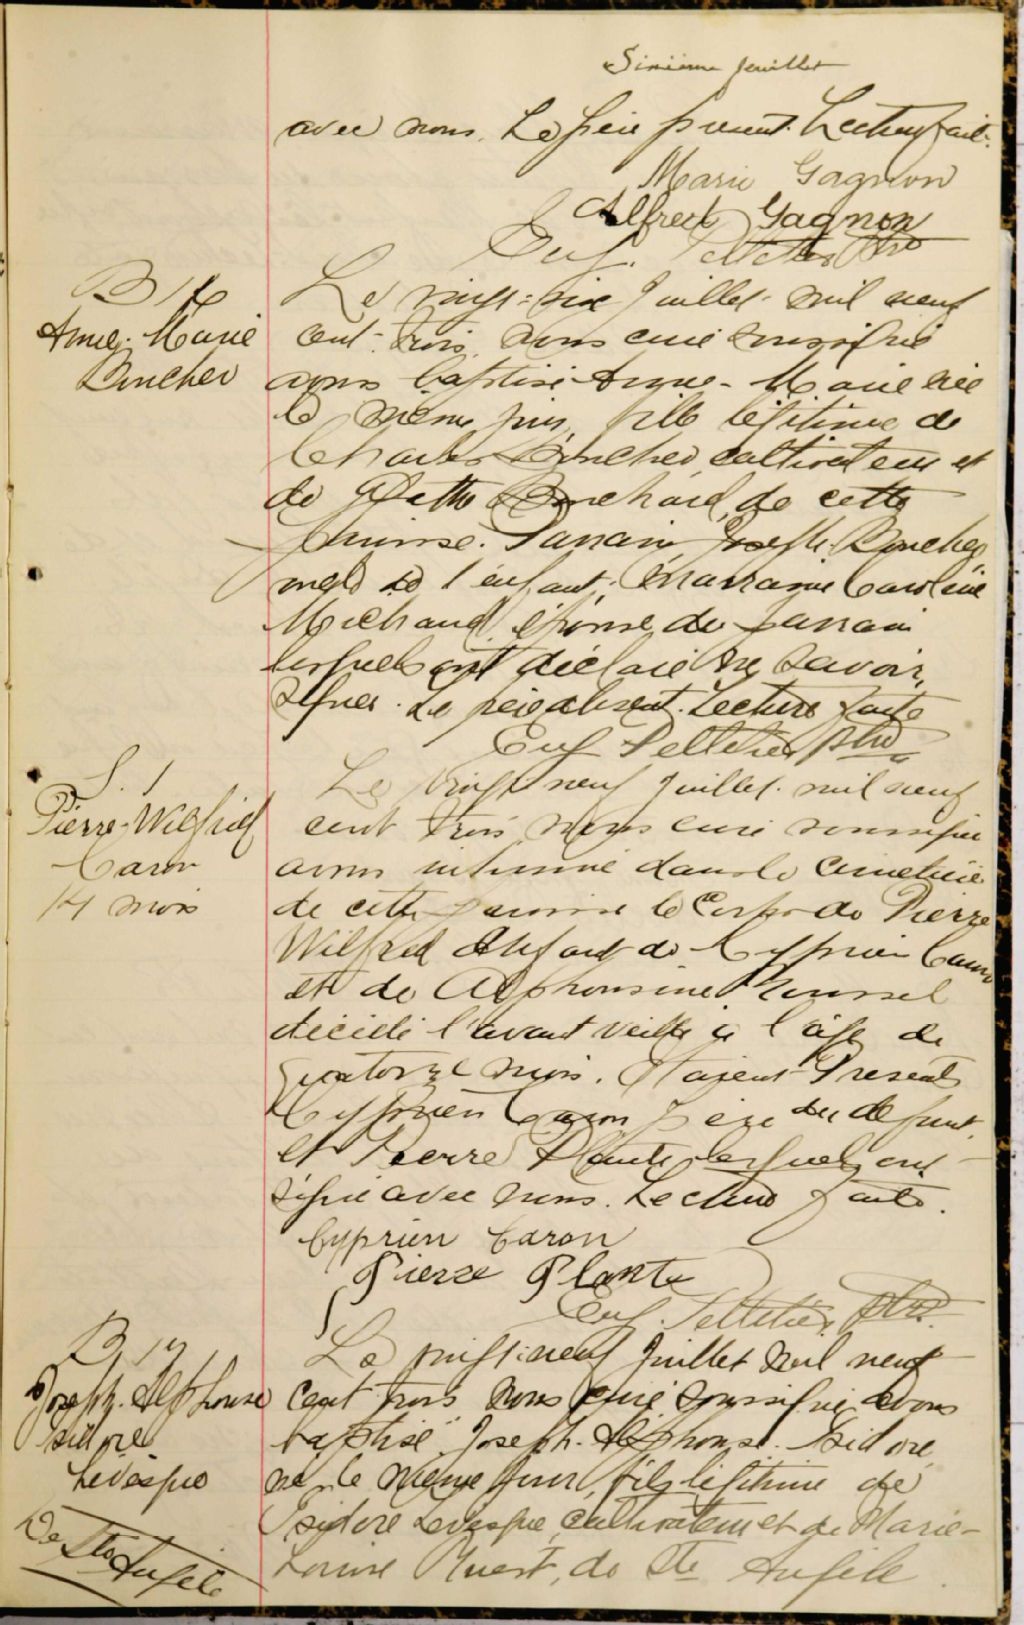 Sixième feuillet
avec nous. Le père présent. Lecture faite.
Marie Gagnon
Alfred Gagnon
Eug. Pelletier Ptre
B 16
Anne-Marie
Boucher
Le vingt-six Juillet mil neuf
cent trois, nous curé soussigné
avons baptisé Anne-Marie née
le même jour, fille légitime de
Charles Boucher, cultivateur et
de Bouchard, de cette
paroisse. Parrain Joseph Boucher
oncle de l'enfant. Marraine Caroline
Michaud, épouse du parrain
lesquels ont déclaré ne savoir
signer. Le père absent. Lecture faite
Eug Pelletier ptre
S. 1
Pierre-Wilfrid
Caron
14 mois
Le vingt neuf Juillet mil neuf
cent trois nous curé soussigné
avons inhumé dans le cimetière
de cette paroisse le Corps de Pierre
Wilfred enfant de Cyprien Caron
et de Alphonsine Roussel
décédé l'avant veille à l'âge de
quatorze mois. Etaient Présents
Cyprien Caron père du défunt
et Pierre Plante lesquels ont
signé avec nous. Lecture faite.
Cyprien Caron
Pierre Plante
Eug. Pelletier Ptre.
B 17
Joseph-Alphonse
Isidore
Levesque
De Ste Angèle
Le vingt-neuf Juillet mil neuf
cent trois nous curé soussigné avons
baptisé Joseph-Alphonse-Isidore
né le même jour, fils légitime de
Isidore Levesque cultivateur et de Marie-
Louise Ruest, de Ste Angèle.